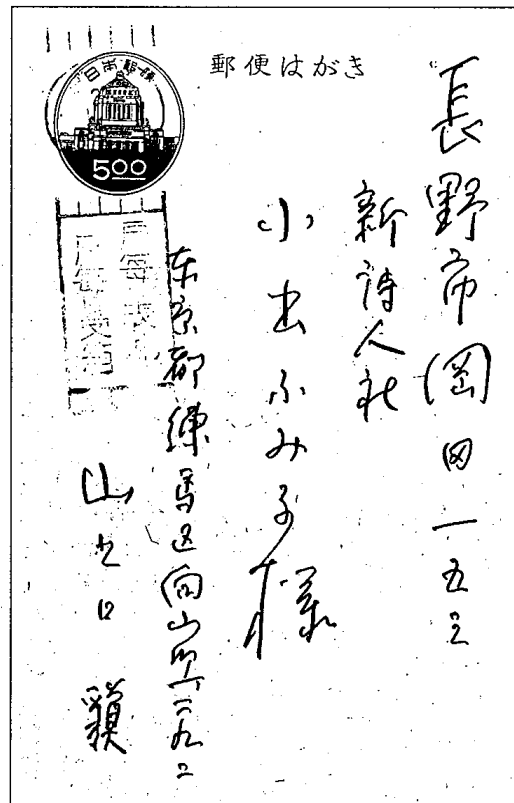 郵便はがき
日本郵便
500
長野市岡田一五三
新詩人社
小出ふみ子様
東京都練馬区向山町一六九二
山之口貘